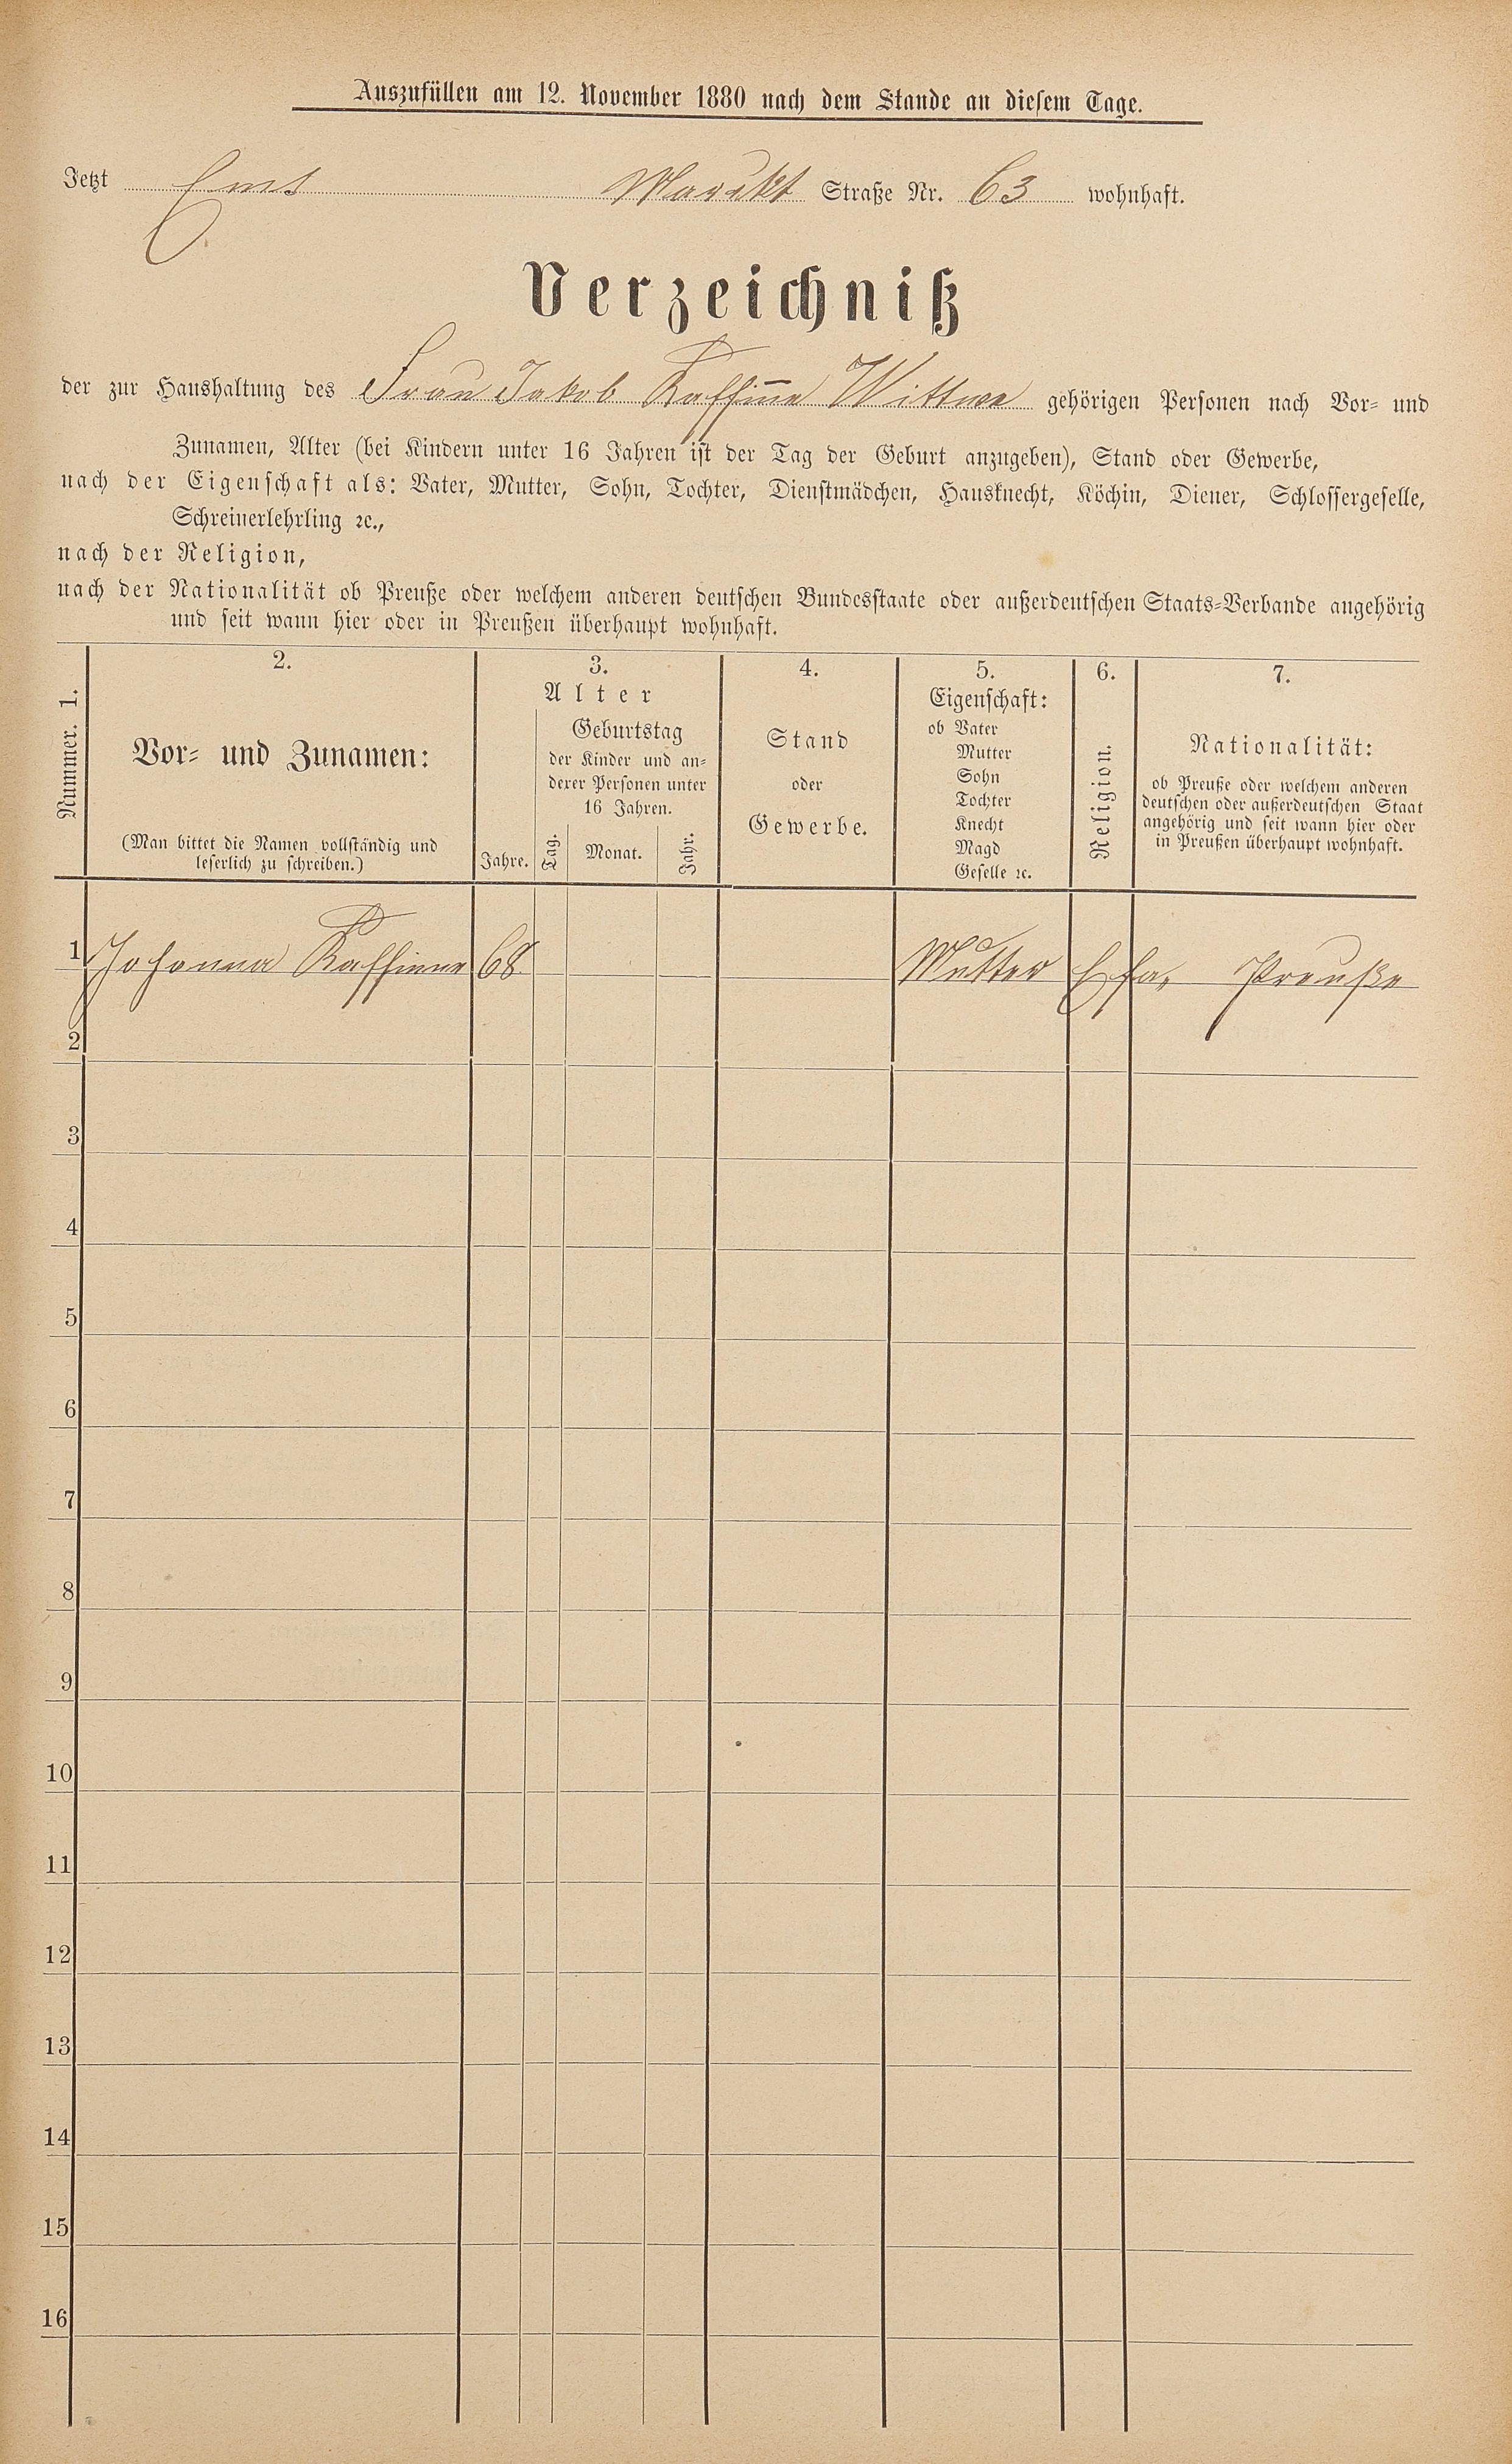 Auszufüllen am 12. November 1880 nach dem Stande an diesem Tage.
Jetzt Ems Marckt Straße Nr. 63 wohnhaft.
Verzeichniß
der zur Haushaltung des Frau Jakob Wittwe gehörigen Personen nach Vor- und
Zunamen, Alter (bei Kindern unter 16 Jahren ist der Tag der Geburt anzugeben), Stand oder Gewerbe,
nach der Eigenschaft als: Vater, Mutter, Sohn, Tochter, Dienstmädchen, Hausknecht, Köchin, Diener, Schlossergeselle,
Schreinerlehrling ꝛc.,
nach der Religion,
nach der Nationalität ob Preuße oder welchem anderen deutschen Bundesstaate oder außerdeutschen Staats-Verbande angehörig
und seit wann hier oder in Preußen überhaupt wohnhaft.
Nummer. 1.
2.
Vor- und Zunamen:
(Man bittet die Namen vollständig und
leserlich zu schreiben.)
3.
Alter
Geburtstag
der Kinder und an-
derer Personen unter
16 Jahren.
Jahre. Tag. Monat. Jahr.
4.
Stand
oder
Gewerbe.
5.
Eigenschaft:
ob Vater
Mutter
Sohn
Tochter
Knecht
Magd
Geselle ꝛc.
6.
Religion.
7.
Nationalität:
ob Preuße oder welchem anderen
deutschen oder außerdeutschen Staat
angehörig und seit wann hier oder
in Preußen überhaupt wohnhaft.
1 Johanna 68 Mutter Preuße
2
3
4
5
6
7
8
9
10
11
12
13
14
15
16